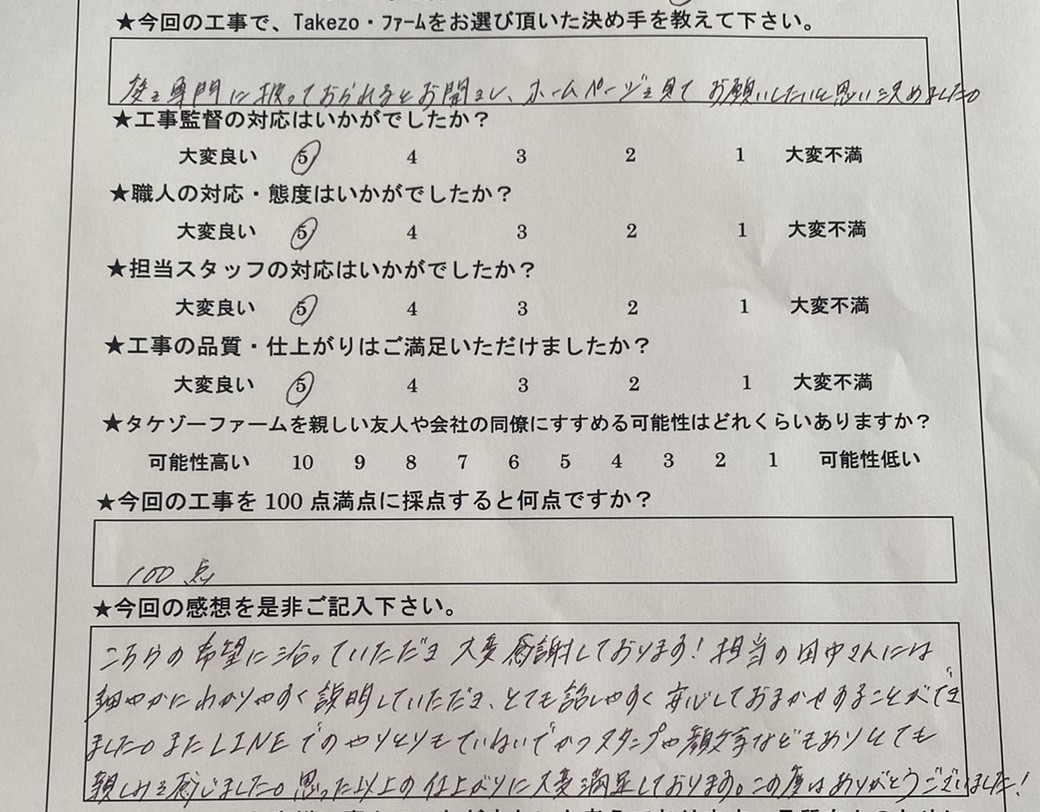 ★今回の工事で、Takezo・ﾌｧｰﾑをお選び頂いた決め手を教えて下さい。
を専門に扱っておられるとお聞きし、ホームページを見て お願いしたいと思い決めました。
★工事監督の対応はいかがでしたか？
大変良い 5 4 3 2 1 大変不満
★職人の対応・態度はいかがでしたか？
大変良い 5 4 3 2 1 大変不満
★担当スタッフの対応はいかがでしたか？
大変良い 5 4 3 2 1 大変不満
★工事の品質・仕上がりはご満足いただけましたか？
大変良い 5 4 3 2 1 大変不満
★タケゾーファームを親しい友人や会社の同僚にすすめる可能性はどれくらいありますか？
可能性高い 10 9 8 7 6 5 4 3 2 1 可能性低い
★今回の工事を 100 点満点に採点すると何点ですか？
100 点
★今回の感想を是非ご記入下さい。
こちらの希望に沿っていただき 大変感謝しております！担当の田中さんには
細やかにわかりやすく説明していただき、とても話しやすく 安心しておまかせすることができ
ました。またLINEでのやりとりもていねいでかつスタンプや顔文字などもありとても
親しみを感じました。思った以上の仕上がりに大変満足しております。この度はありがとうございました！